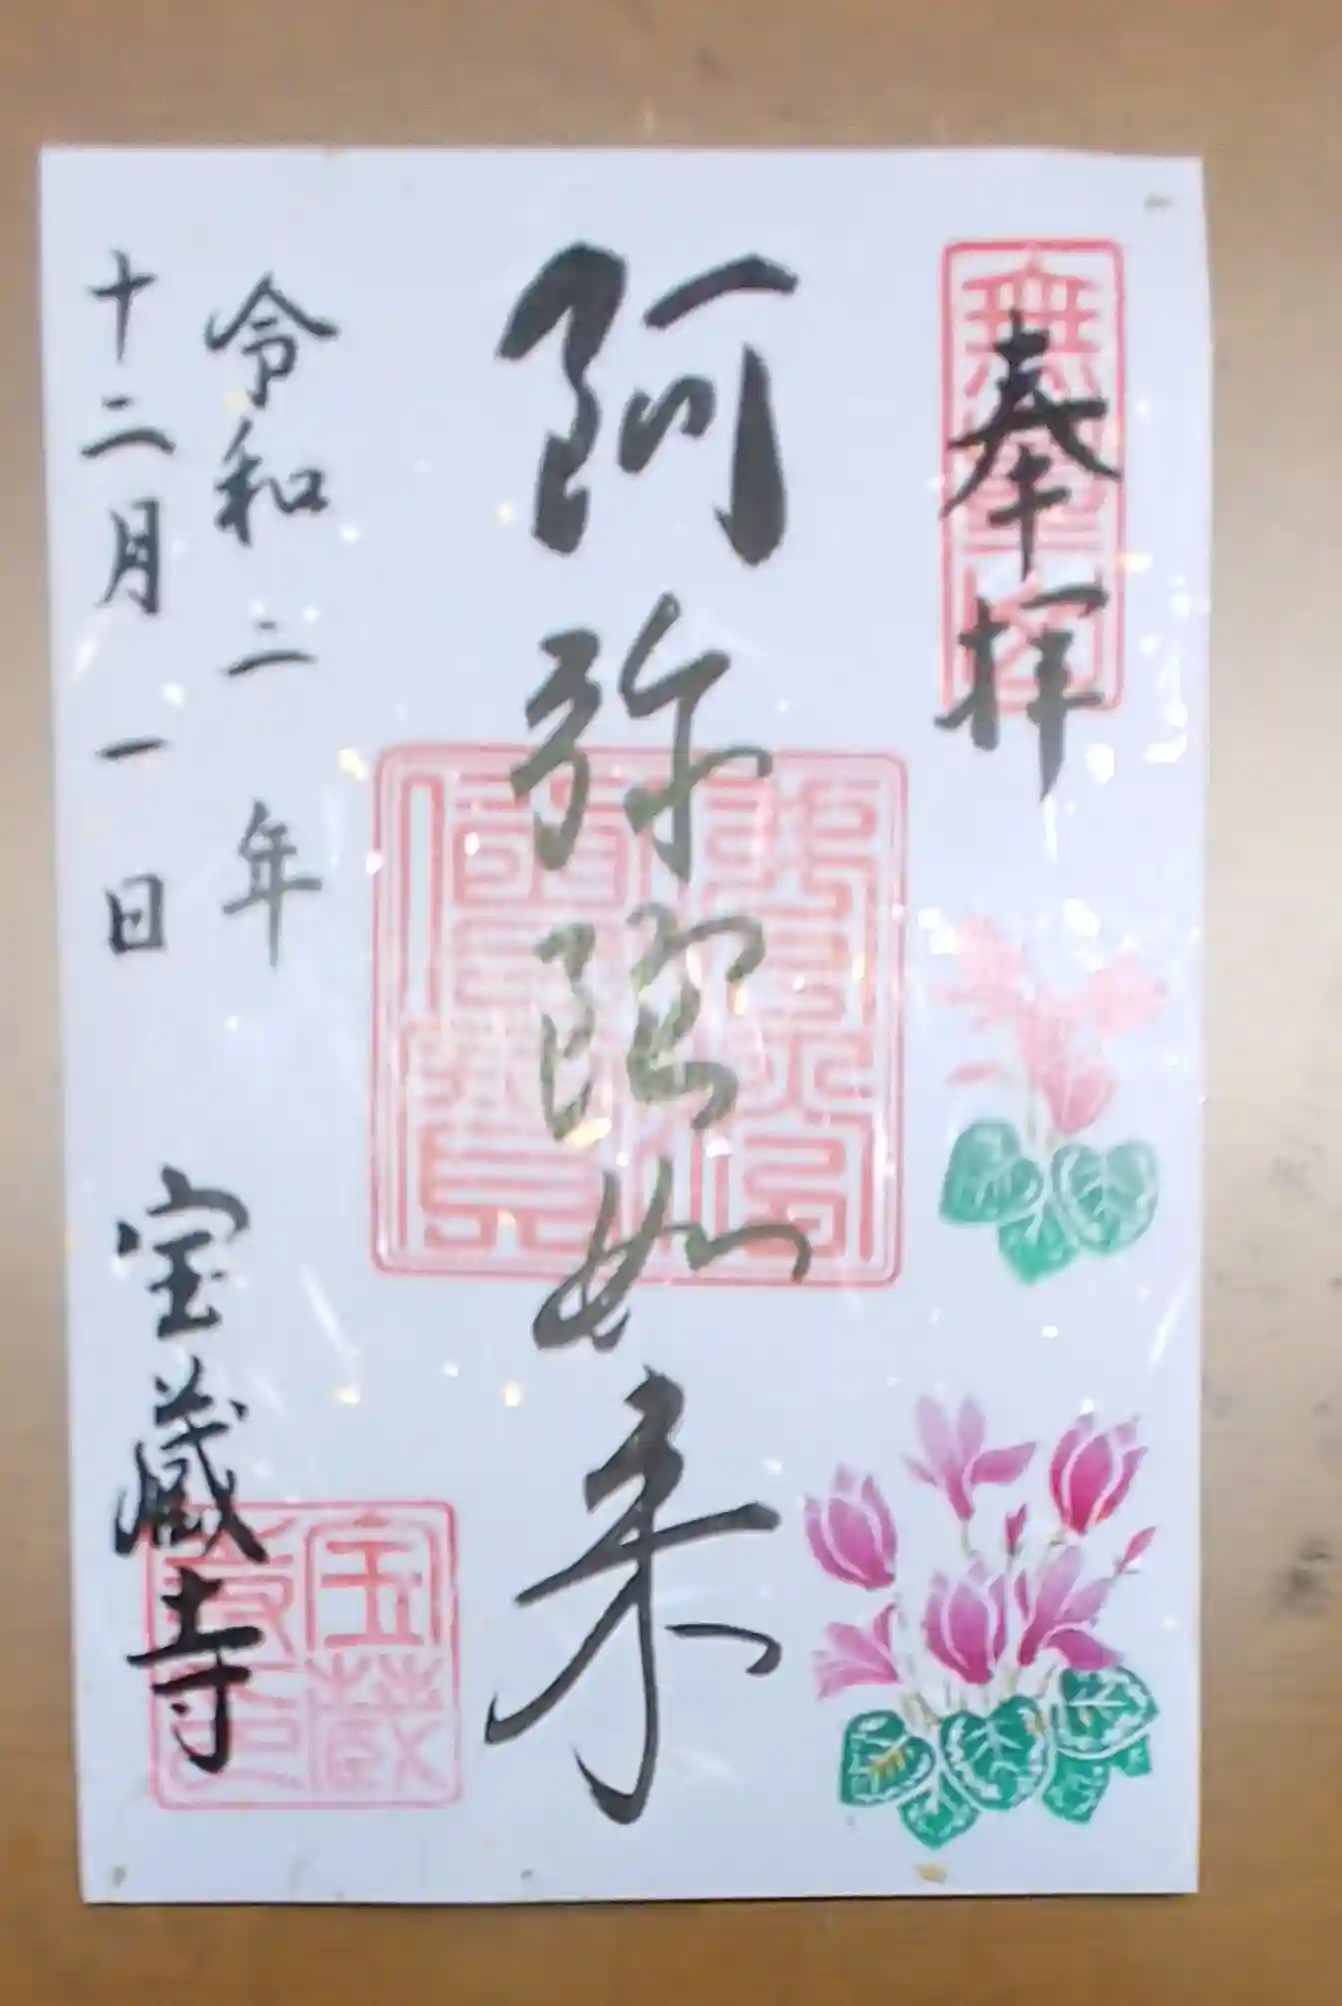 奉拝
阿弥陀如来
令和二年
十二月一日
宝蔵寺
宝蔵